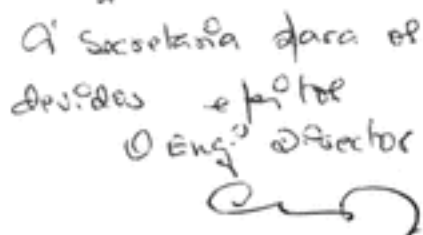 À Secretária para os
devidos efeitos
O Engº Director